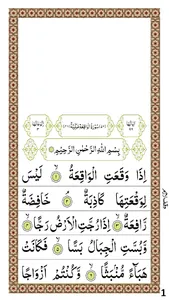 بِسْمِ اللّٰهِ الرَّحْمٰنِ الرَّحِیْمِ
اِذَا وَقَعَتِ الْوَاقِعَةُ ۙ﴿۱﴾ لَیْسَ
لِوَقْعَتِهَا كَاذِبَةٌ ۘ﴿۲﴾ خَافِضَةٌ
رَّافِعَةٌ ۙ﴿۳﴾ اِذَا رُجَّتِ الْاَرْضُ رَجًّا ۙ﴿۴﴾
وَّ بُسَّتِ الْجِبَالُ بَسًّا ۙ﴿۵﴾ فَكَانَتْ
هَبَآءً مُّنْۢبَثًّا ۙ﴿۶﴾ وَّ كُنْتُمْ اَزْوَاجًا
1